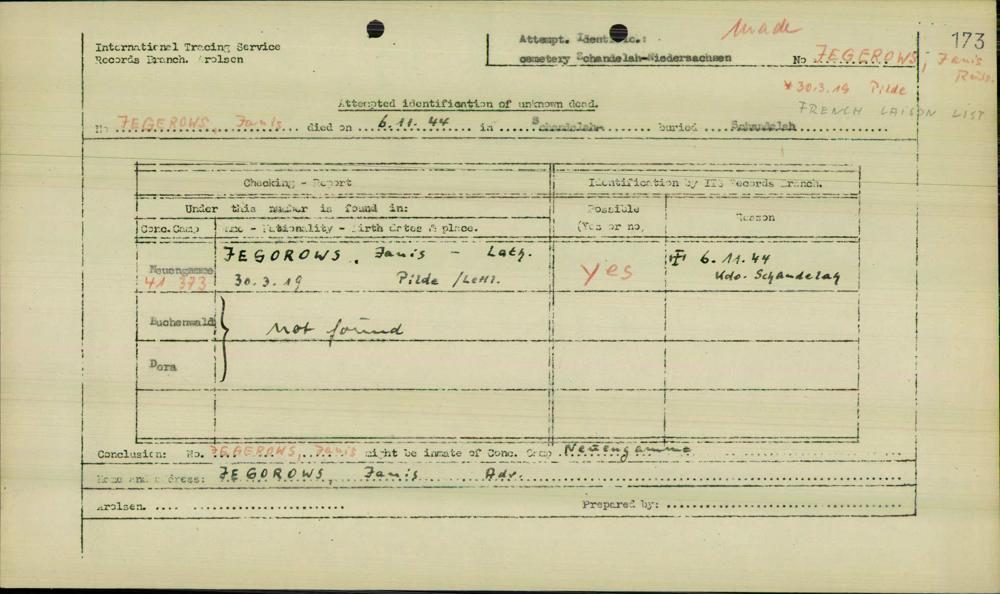 Made
173
International Tracing Service
Records Branch. Arolsen
Attempt. Identific.:
cemetery Schandelah-Niedersachsen
No JEGEROWS, Janis
Russ.
* 30.3.19 Pilde
FRENCH LAISON LIST
Attempted identification of unknown dead.
No JEGEROWS, Janis died on 6.11.44 in Schandelah buried Schandelah
Checking - Report
Identification by ITS Records Branch.
Under this number is found in:
Possible
(Yes or no)
Reason
Conc.Camp
Name - Nationality - Birth dates & place.
Neuengamme
41 373
JEGOROWS, Janis - Lath.
30.3.19 Pilde /Lettl.
yes
6.11.44
Kdo. Schandelah
Buchenwald
Not found
Dora
Conclusion: No. JEGEROWS, Janis might be inmate of Conc. Camp Neuengamme
Name and address: JEGOROWS, Janis Adr.
Arolsen.
Prepared by: